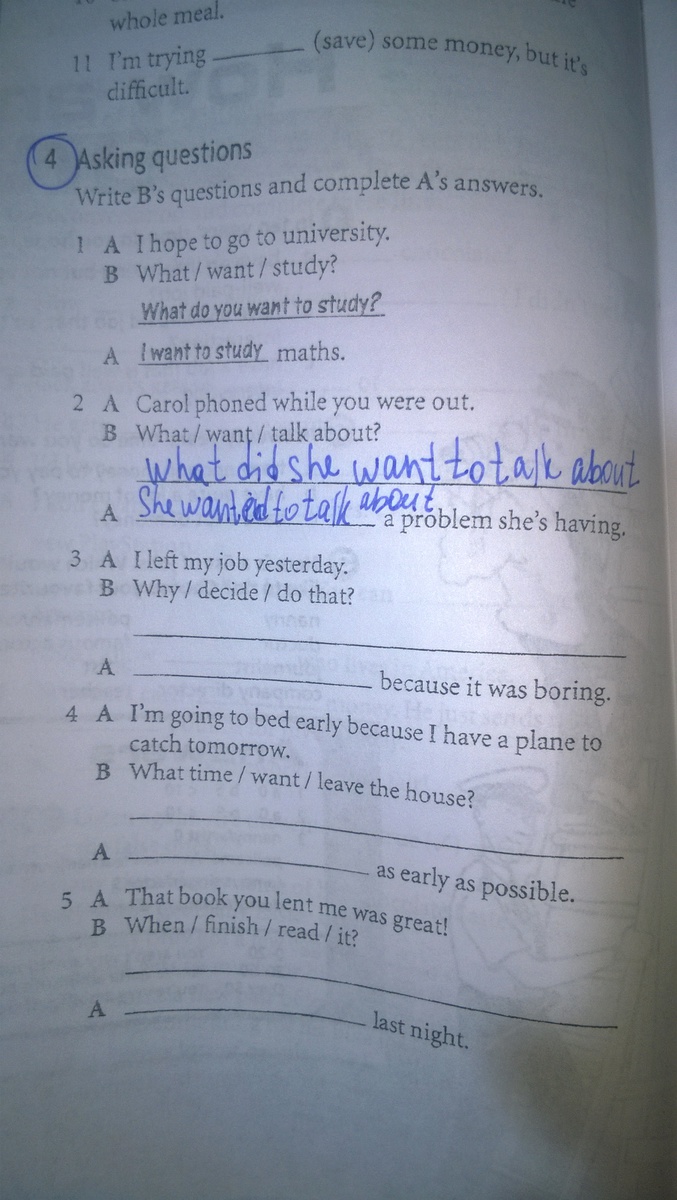 whole meal.
11 I'm trying ________ (save) some money, but it's
difficult.
4 Asking questions
Write B's questions and complete A's answers.
1 A I hope to go to university.
B What / want / study?
What do you want to study?
A I want to study maths.
2 A Carol phoned while you were out.
B What / want / talk about?
What did she want to talk about
A She wanted to talk about a problem she's having.
3 A I left my job yesterday.
B Why / decide / do that?
A ________ because it was boring.
4 A I'm going to bed early because I have a plane to
catch tomorrow.
B What time / want / leave the house?
A ________ as early as possible.
5 A That book you lent me was great!
B When / finish / read / it?
A ________ last night.